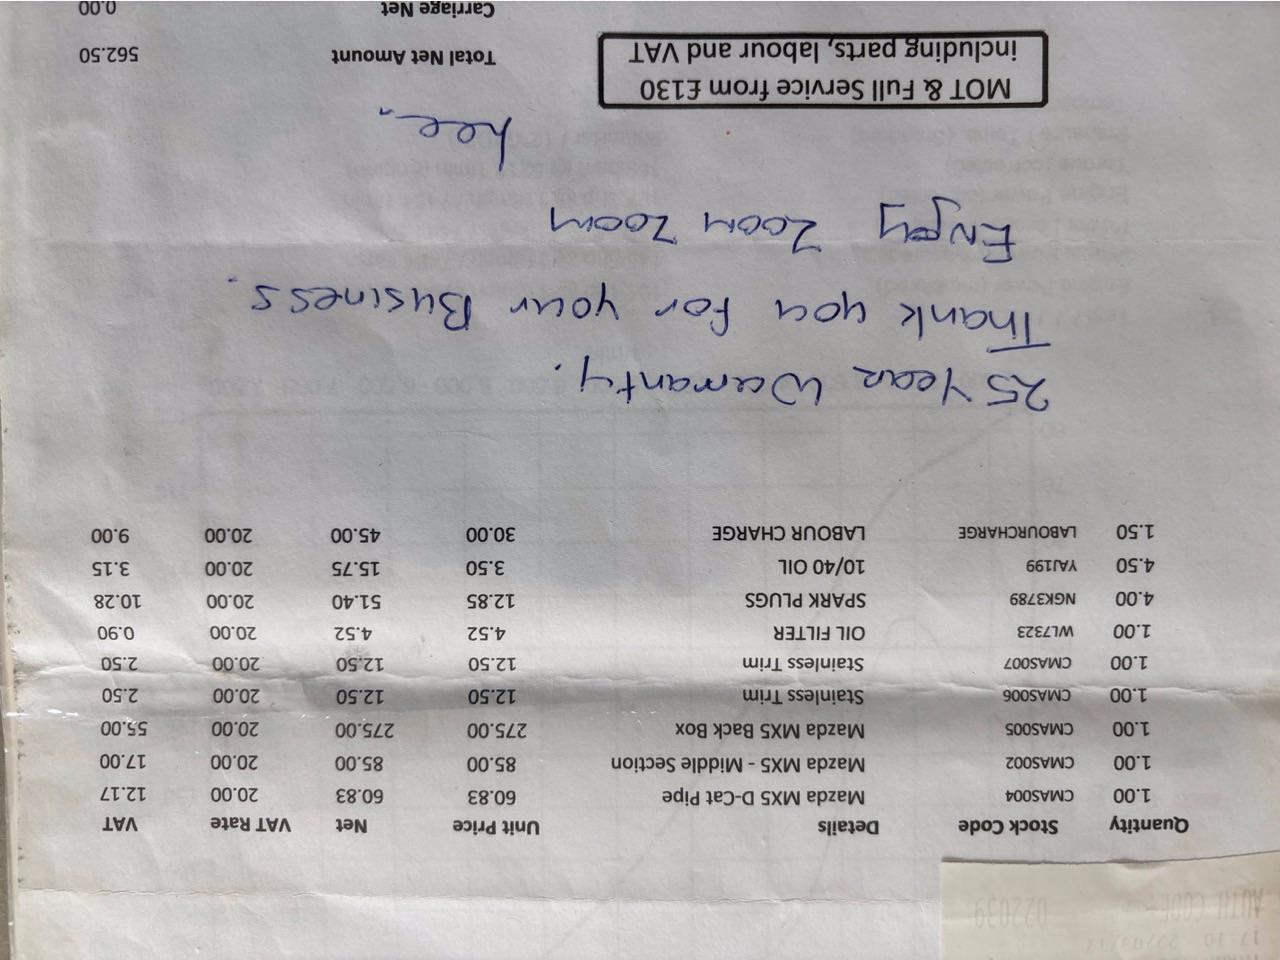 AUTH CODE: 022039
Quantity Stock Code Details Unit Price Net VAT Rate VAT
1.00 CMAS004 Mazda MX5 D-Cat Pipe 60.83 60.83 20.00 12.17
1.00 CMAS002 Mazda MX5 - Middle Section 85.00 85.00 20.00 17.00
1.00 CMAS005 Mazda MX5 Back Box 275.00 275.00 20.00 55.00
1.00 CMAS006 Stainless Trim 12.50 12.50 20.00 2.50
1.00 CMAS007 Stainless Trim 12.50 12.50 20.00 2.50
1.00 WL7323 OIL FILTER 4.52 4.52 20.00 0.90
4.00 NGK3789 SPARK PLUGS 12.85 51.40 20.00 10.28
4.50 YAJ199 10/40 OIL 3.50 15.75 20.00 3.15
1.50 LABOURCHARGE LABOUR CHARGE 30.00 45.00 20.00 9.00
25 Year Warranty.
Thank you for your Business.
Enjoy Zoom Zoom
Lee.
MOT & Full Service from £130
including parts, labour and VAT
Total Net Amount 562.50
Carriage Net 0.00